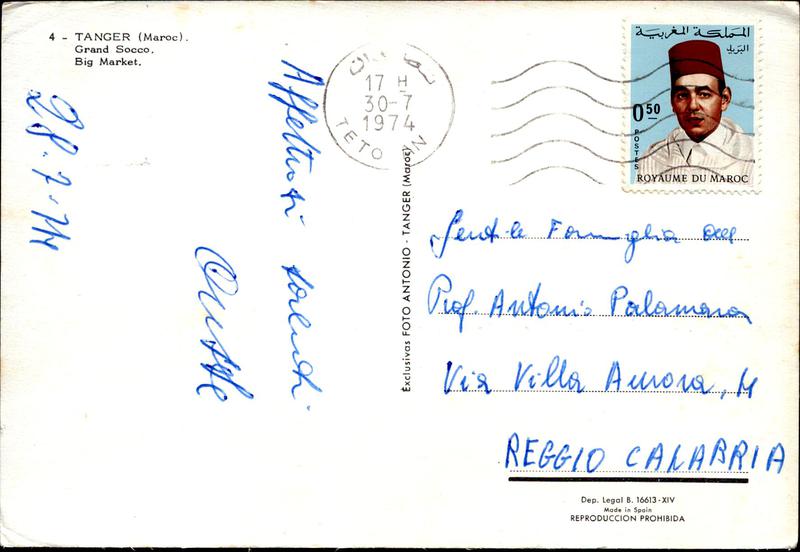 4 - TANGER (Maroc).
Grand Socco.
Big Market.
28.7.74
Affettuosi saluti
تطوان
17 H
30-7
1974
TETOUAN
المملكة المغربية
البريد
0.50
POSTES
ROYAUME DU MAROC
Exclusivas FOTO ANTONIO - TANGER (Maroc)
Gent.le Famiglia del
Prof Antonio Palamara
Via Villa Aurora,
REGGIO CALABRIA
Dep. Legal B. 16613-XIV
Made in Spain
REPRODUCCION PROHIBIDA